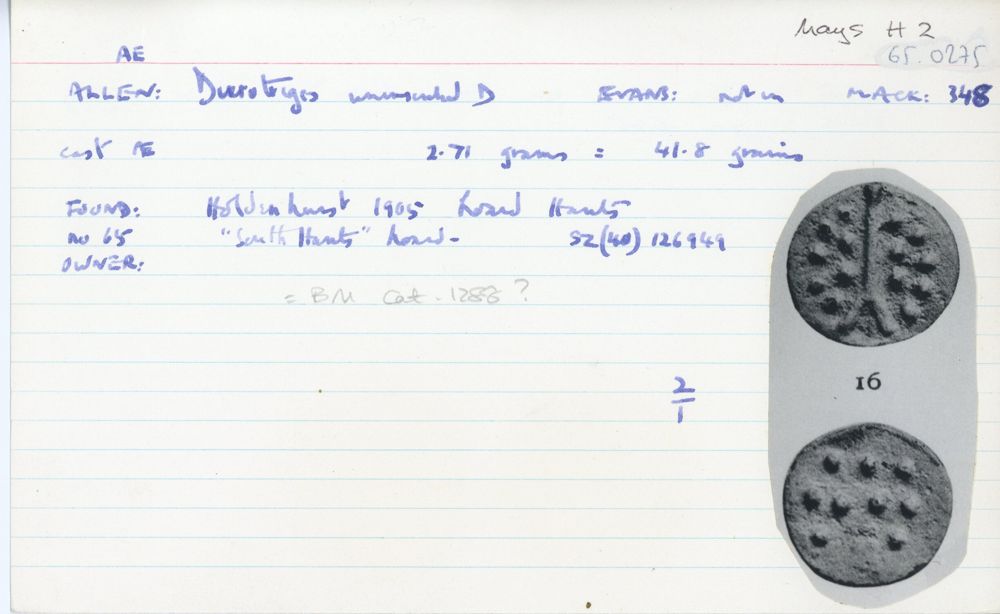 Mays H 2
65.0275
AE
ALLEN: Durotriges uninscribed D EVANS: not in MACK: 348
cast AE 2.71 grams = 41.8 grains
FOUND: Holdenhurst 1905 hoard Hants
no 65 "South Hants" hoard - SZ(40) 126949
OWNER:
= BM Cat. 1288 ?
16
2
1